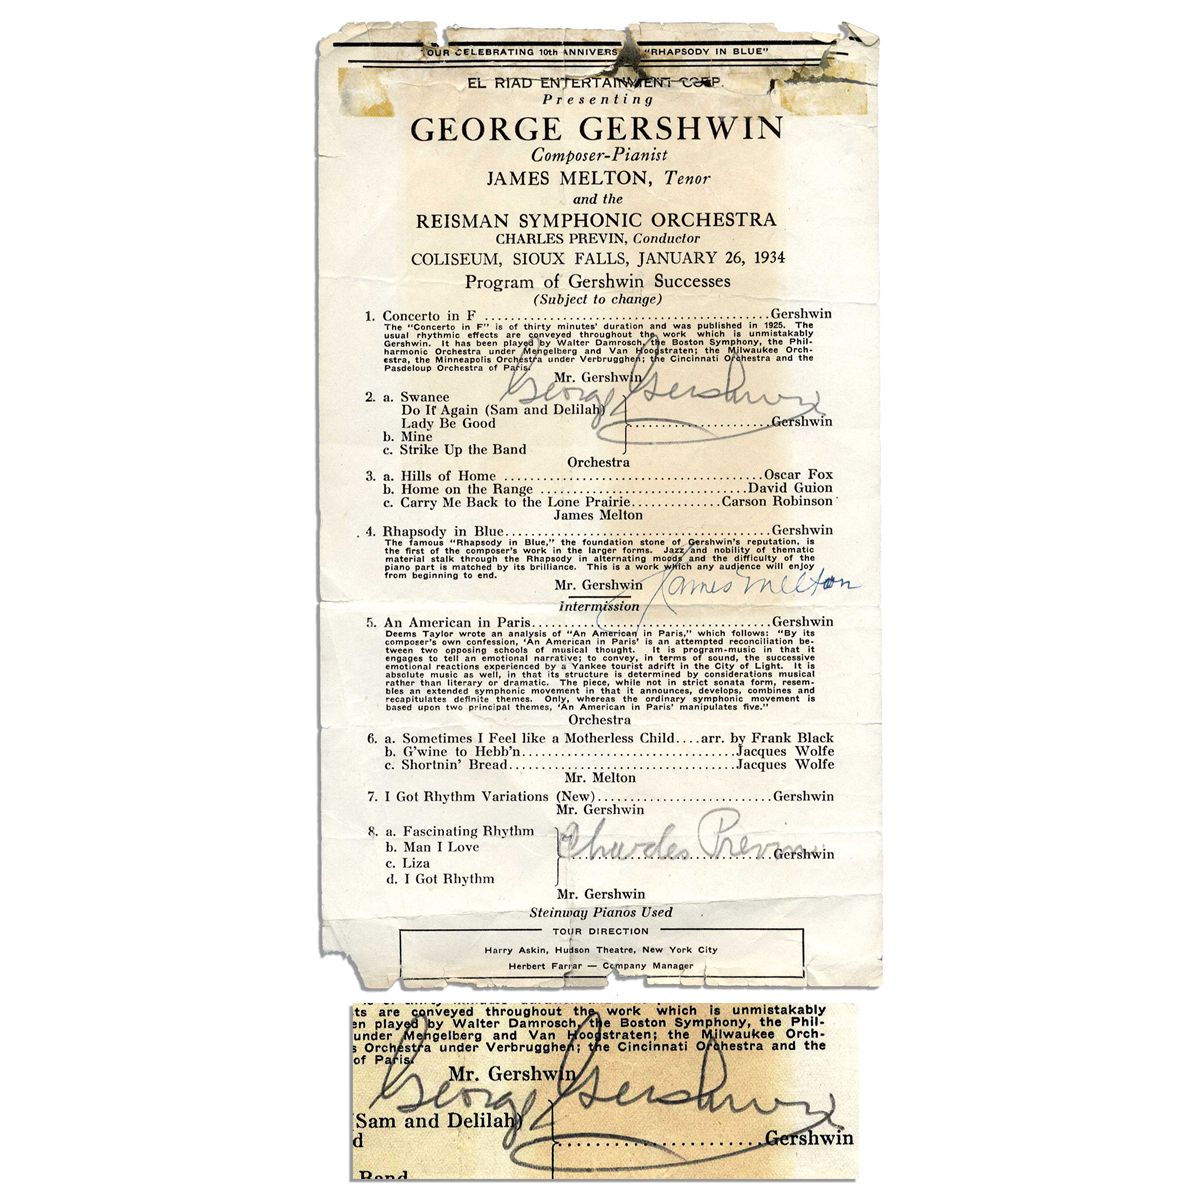 OUR CELEBRATING 10th ANNIVERS "RHAPSODY IN BLUE"
EL RIAD ENTERTAINMENT CORP.
Presenting
GEORGE GERSHWIN
Composer-Pianist
JAMES MELTON, Tenor
and the
REISMAN SYMPHONIC ORCHESTRA
CHARLES PREVIN, Conductor
COLISEUM, SIOUX FALLS, JANUARY 26, 1934
Program of Gershwin Successes
(Subject to change)
1. Concerto in F ........................................Gershwin
The "Concerto in F" is of thirty minutes' duration and was published in 1925. The
usual rhythmic effects are conveyed throughout the work which is unmistakably
Gershwin. It has been played by Walter Damrosch, the Boston Symphony, the Phil-
harmonic Orchestra under Mengelberg and Van Hoogstraten; the Milwaukee Orch-
estra, the Minneapolis Orchestra under Verbrugghen; the Cincinnati Orchestra and the
Pasdeloup Orchestra of Paris.
Mr. Gershwin
George Gershwin
2. a. Swanee
Do It Again (Sam and Delilah)
Lady Be Good ....................Gershwin
b. Mine
c. Strike Up the Band
Orchestra
3. a. Hills of Home ....................................Oscar Fox
b. Home on the Range .............................David Guion
c. Carry Me Back to the Lone Prairie.............Carson Robinson
James Melton
4. Rhapsody in Blue.....................................Gershwin
The famous "Rhapsody in Blue," the foundation stone of Gershwin's reputation, is
the first of the composer's work in the larger forms. Jazz and nobility of thematic
material stalk through the Rhapsody in alternating moods and the difficulty of the
piano part is matched by its brilliance. This is a work which any audience will enjoy
from beginning to end.
Mr. Gershwin
James Melton
Intermission
5. An American in Paris.................................Gershwin
Deems Taylor wrote an analysis of "An American in Paris," which follows: "By its
composer's own confession, 'An American in Paris' is an attempted reconciliation be-
tween two opposing schools of musical thought. It is program-music in that it
engages to tell an emotional narrative; to convey, in terms of sound, the successive
emotional reactions experienced by a Yankee tourist adrift in the City of Light. It is
absolute music as well, in that its structure is determined by considerations musical
rather than literary or dramatic. The piece, while not in strict sonata form, resem-
bles an extended symphonic movement in that it announces, develops, combines and
recapitulates definite themes. Only, whereas the ordinary symphonic movement is
based upon two principal themes, 'An American in Paris' manipulates five."
Orchestra
6. a. Sometimes I Feel like a Motherless Child....arr. by Frank Black
b. G'wine to Hebb'n..............................Jacques Wolfe
c. Shortnin' Bread................................Jacques Wolfe
Mr. Melton
7. I Got Rhythm Variations (New)........................Gershwin
Mr. Gershwin
8. a. Fascinating Rhythm
Charles Previn
b. Man I Love
............................Gershwin
c. Liza
d. I Got Rhythm
Mr. Gershwin
Steinway Pianos Used
TOUR DIRECTION
Harry Askin, Hudson Theatre, New York City
Herbert Farrar — Company Manager
ts are conveyed throughout the work which is unmistakably
en played by Walter Damrosch, the Boston Symphony, the Phil-
under Mengelberg and Van Hoogstraten; the Milwaukee Orch-
s Orchestra under Verbrugghen; the Cincinnati Orchestra and the
of Paris.
Mr. Gershwin
George Gershwin
(Sam and Delilah)
d ....................Gershwin
Band